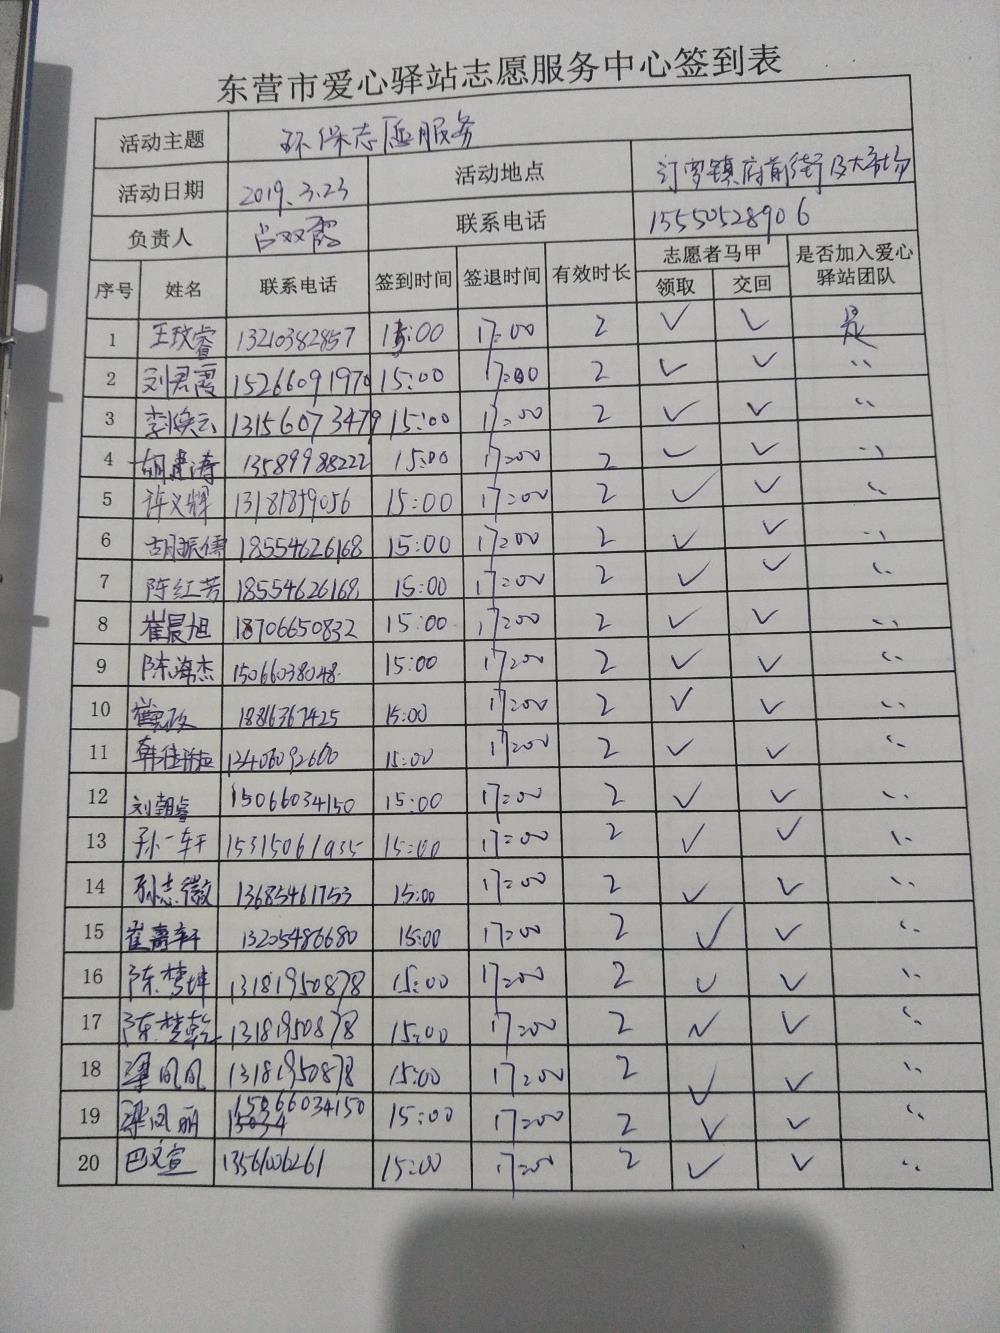 东营市爱心驿站志愿服务中心签到表
活动主题 环保志愿服务
活动日期 2019.3.23 活动地点 汀罗镇府前街及大市场
负责人 吕双霞 联系电话 15550528906
序号 姓名 联系电话 签到时间 签退时间 有效时长 志愿者马甲 领取 交回 是否加入爱心驿站团队
1 王玫睿 13210382857 15:00 17:00 2 ✓ ✓ 是
2 刘君霞 15266091970 15:00 17:00 2 ✓ ✓ 〃
3 李焕云 13156073479 15:00 17:00 2 ✓ ✓ 〃
4 胡建涛 13589988222 15:00 17:00 2 ✓ ✓ 〃
5 许义辉 13181879056 15:00 17:00 2 ✓ ✓ 〃
6 胡振儒 18554626168 15:00 17:00 2 ✓ ✓ 〃
7 陈红芳 18554626168 15:00 17:00 2 ✓ ✓ 〃
8 崔晨旭 18706650832 15:00 17:00 2 ✓ ✓ 〃
9 陈海杰 15066038048 15:00 17:00 2 ✓ ✓ 〃
10 15:00 17:00 2 ✓ ✓ 〃
11 13406092600 15:00 17:00 2 ✓ ✓ 〃
12 刘朝睿 15066034150 15:00 17:00 2 ✓ ✓ 〃
13 孙一轩 15315061935 15:00 17:00 2 ✓ ✓ 〃
14 孙志薇 13685461753 15:00 17:00 2 ✓ ✓ 〃
15 崔嘉轩 13205486680 15:00 17:00 2 ✓ ✓ 〃
16 陈梦坤 13181950878 15:00 17:00 2 ✓ ✓ 〃
17 陈梦乾 13181950878 15:00 17:00 2 ✓ ✓ 〃
18 梁凤凤 13181950878 15:00 17:00 2 ✓ ✓ 〃
19 梁凤丽 15066034150 15:00 17:00 2 ✓ ✓ 〃
20 巴文宣 13561006261 15:00 17:00 2 ✓ ✓ 〃